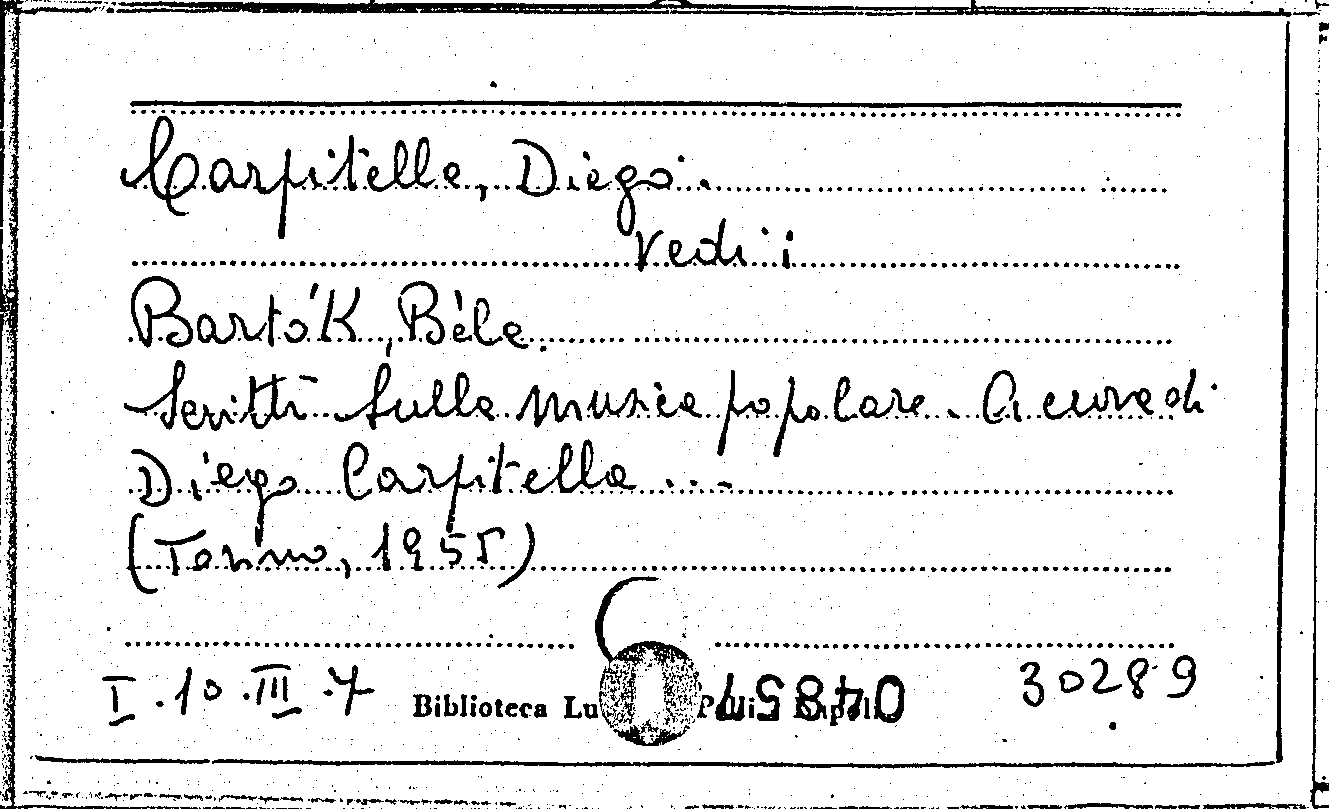 Carpitella, Diego.
Vedi:
Bartók, Béla.
Scritti sulla musica popolare. A cura di
Diego Carpitella ...
(Torino, 1955)
I.10.III.7 Biblioteca Lu 30289